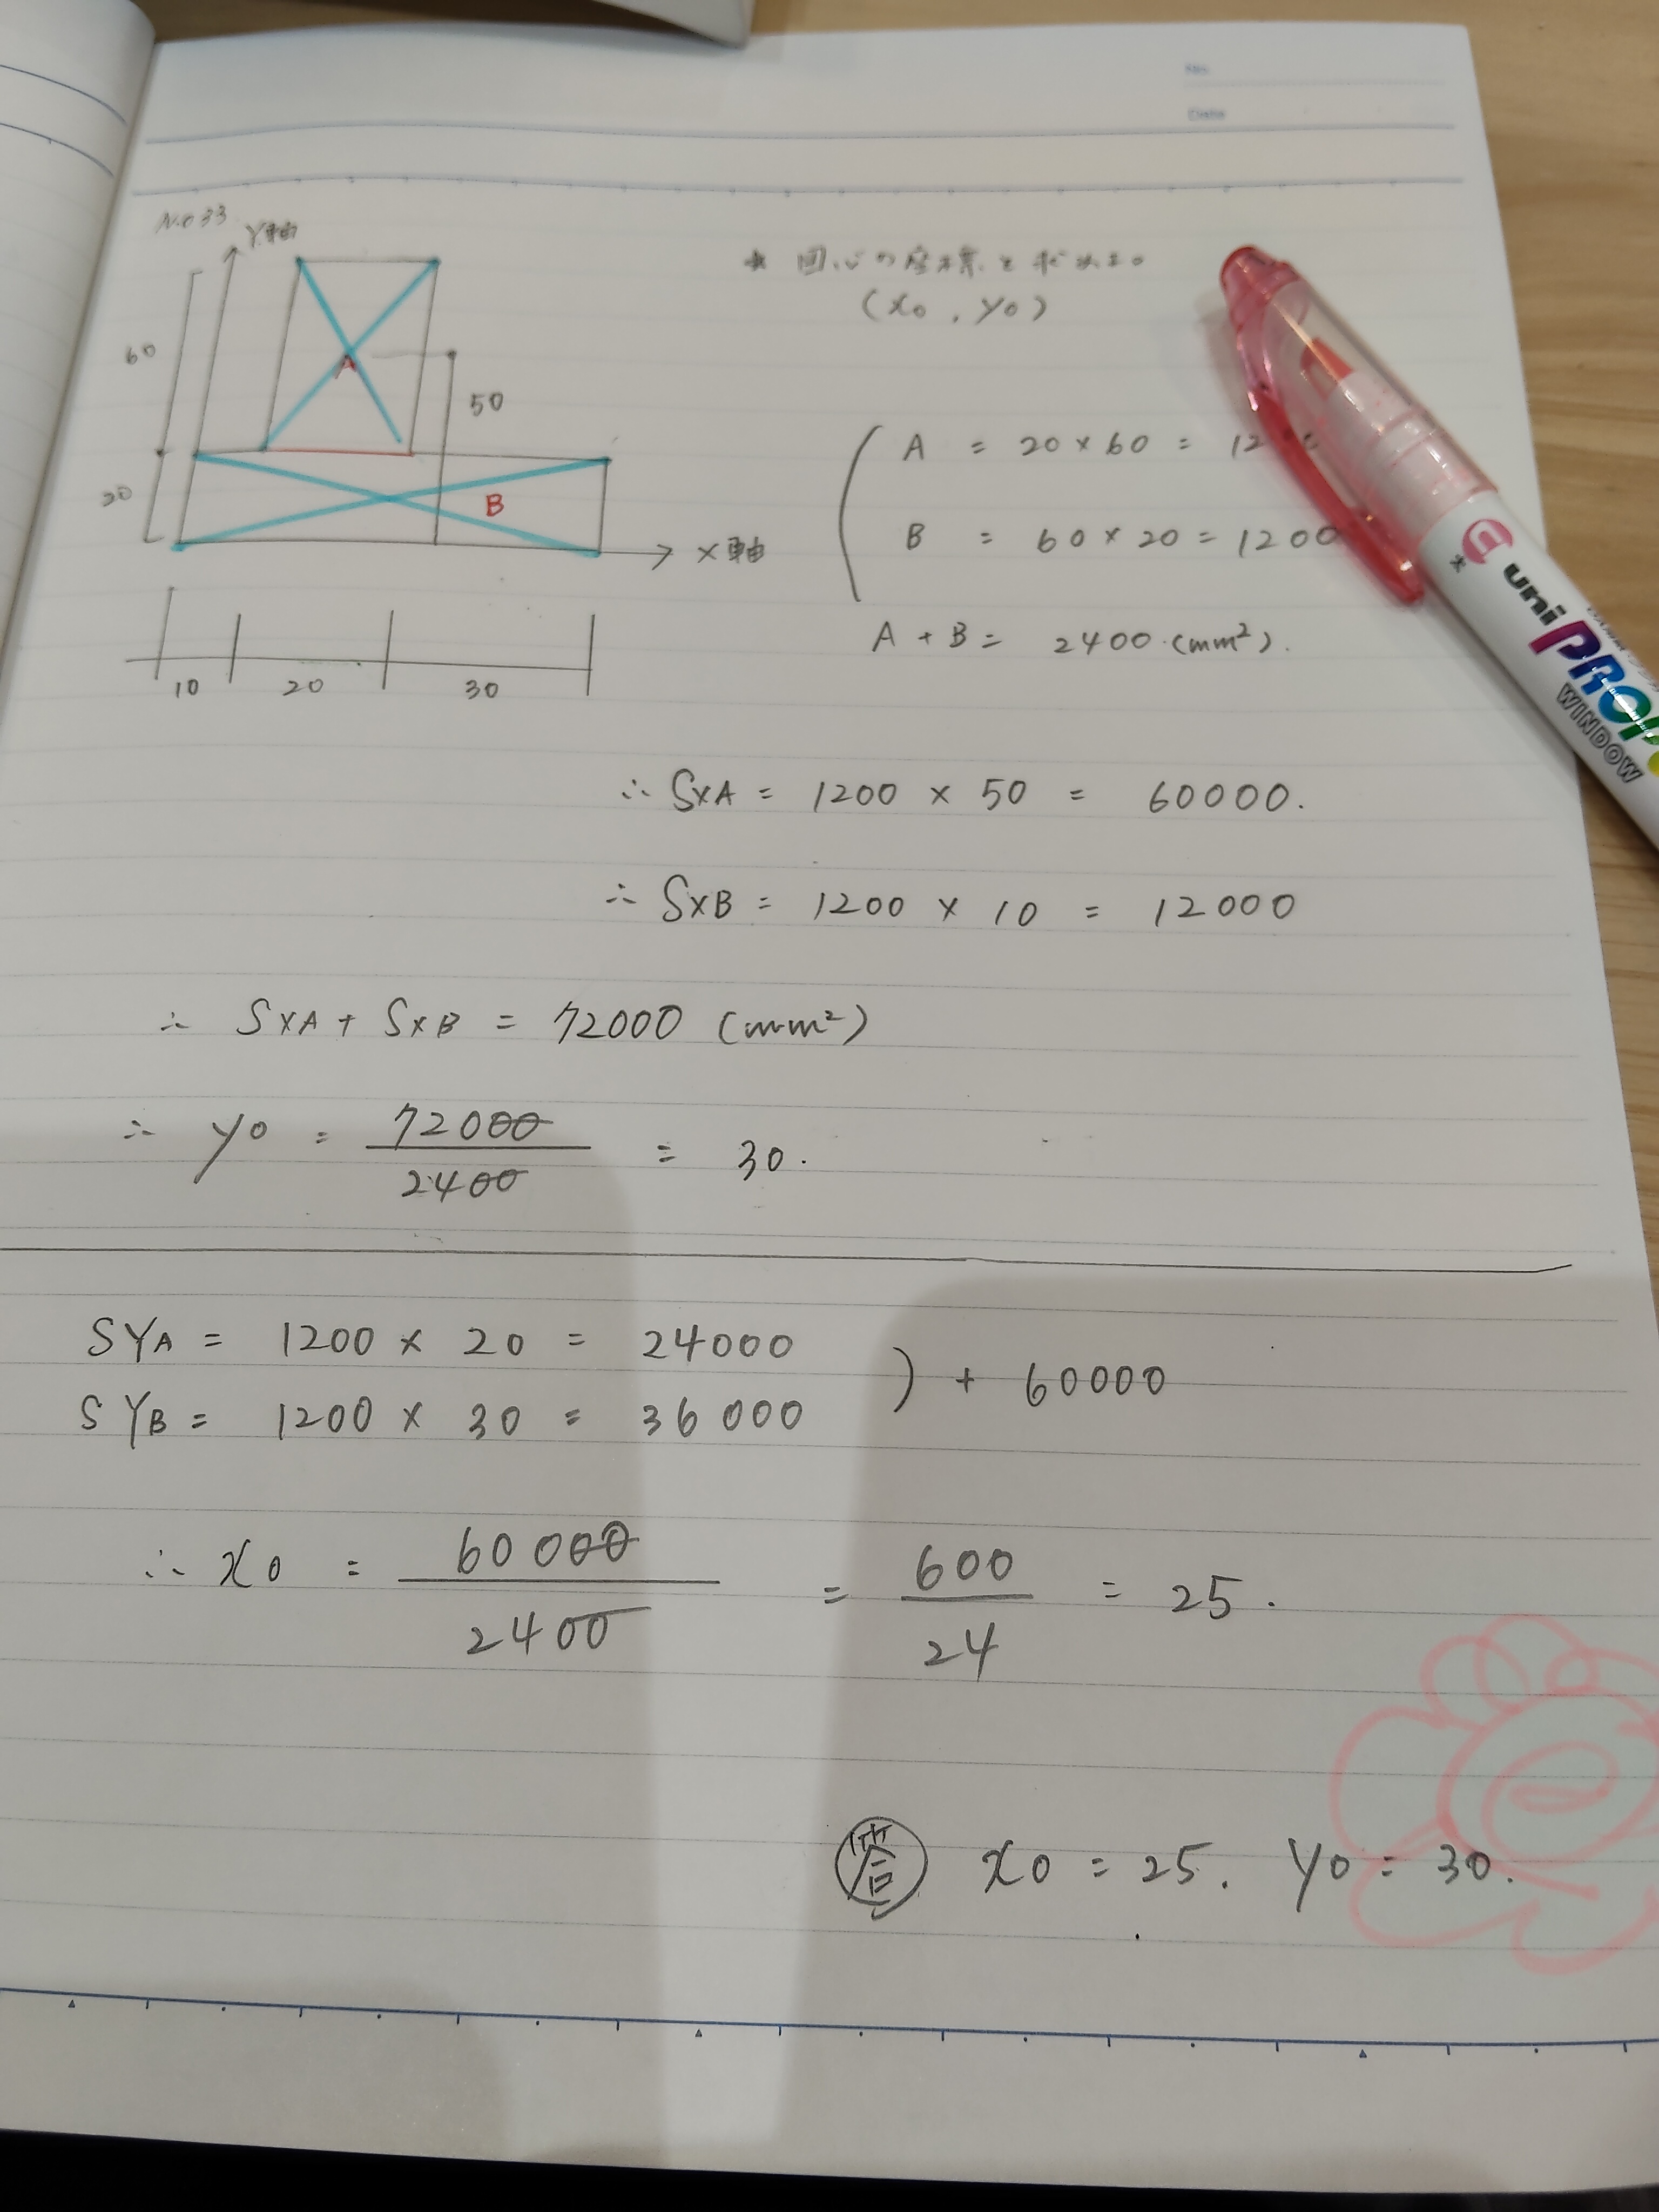 No.
Date
No33
Y軸
* 図心の座標を求めよ。
(x0, y0)
60
A
50
20
B
X軸
10
20
30
A = 20 × 60 = 12
B = 60 × 20 = 1200
A + B = 2400 (mm²).
∴ SXA = 1200 × 50 = 60000.
∴ SXB = 1200 × 10 = 12000
∴ SXA + SXB = 72000 (mm²)
∴ y0 = 72000 / 2400 = 30.
SYA = 1200 × 20 = 24000
SYB = 1200 × 30 = 36000
) + 60000
∴ x0 = 60000 / 2400 = 600 / 24 = 25.
答 x0 = 25. y0 = 30.
uni
PROPUS
WINDOW